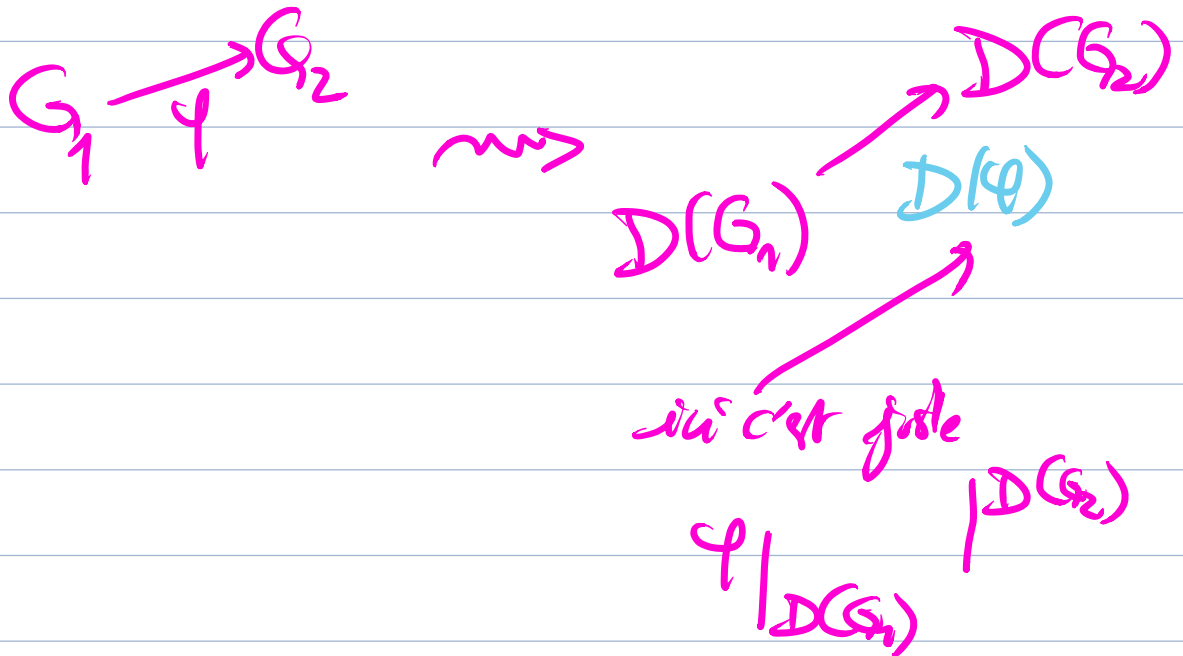 G₁ →φ G₂ ⇝ D(G₁) → D(G₂)
D(φ)
ici c'est juste
φ|D(G₁) |D(G₂)